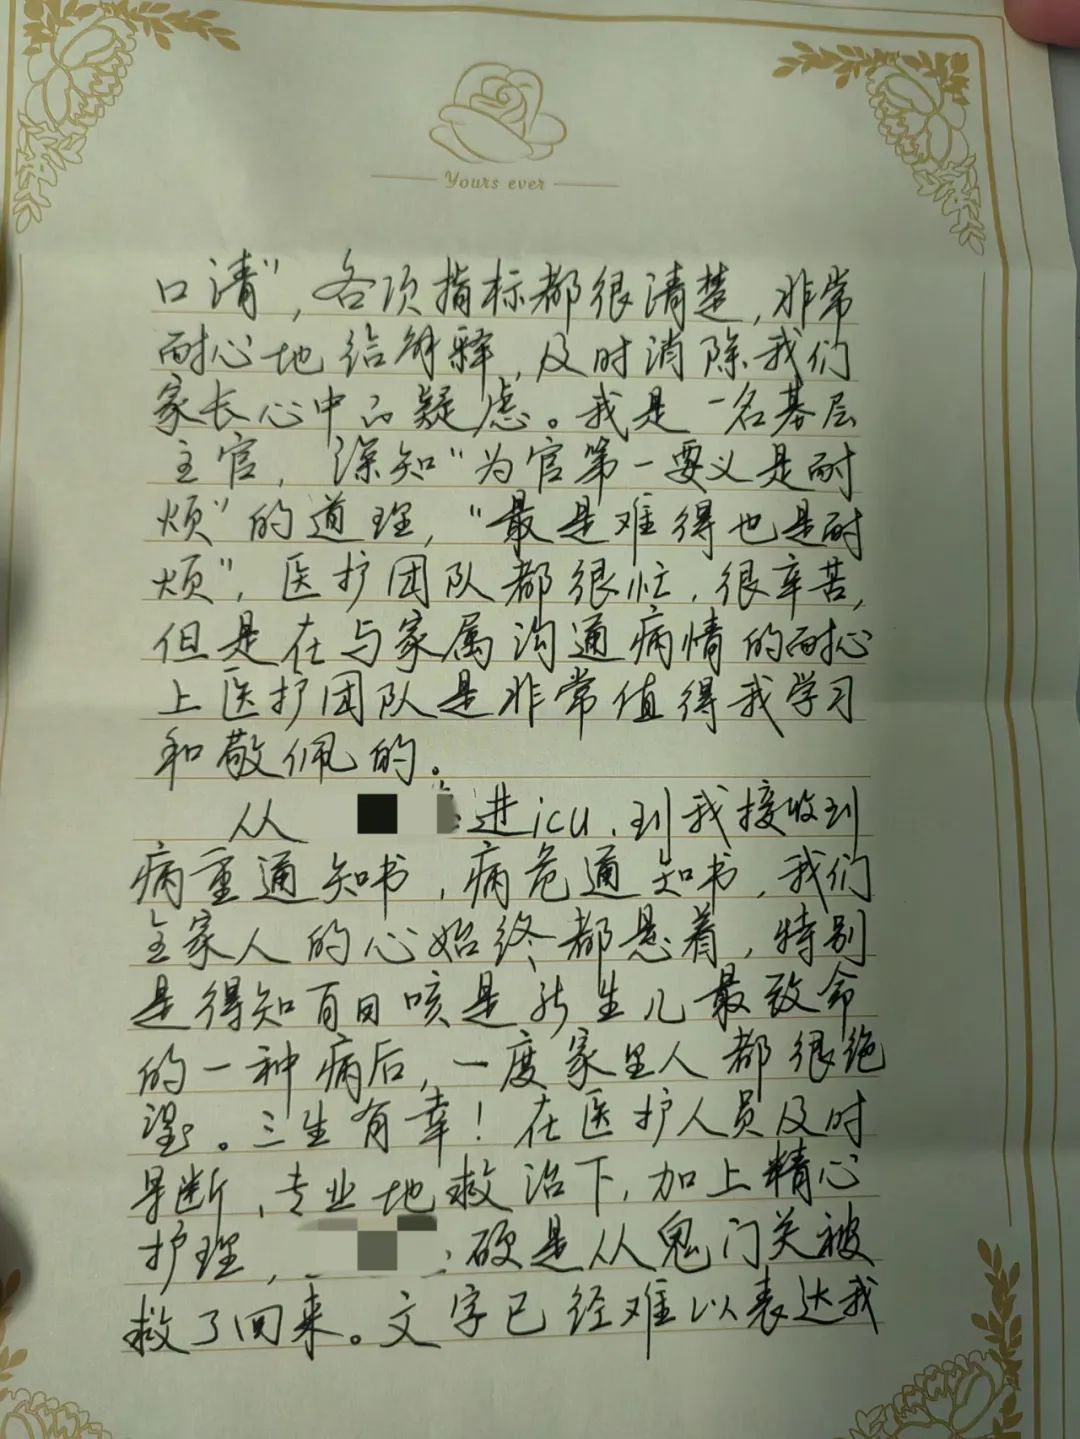 Yours ever
口清”，各项指标都很清楚，非常
耐心地给解释，及时消除我们
家长心中的疑虑。我是一名基层
主官，深知“为官第一要义是耐
烦”的道理，“最是难得也是耐
烦”，医护团队都很忙，很辛苦，
但是在与家属沟通病情的耐心
上医护团队是非常值得我学习
和敬佩的。
从 进icu，到我接收到
病重通知书，病危通知书，我们
全家人的心始终都悬着，特别
是得知百日咳是新生儿最致命
的一种病后，一度家里人都很绝
望。三生有幸！在医护人员及时
早断，专业地救治下，加上精心
护理， 硬是从鬼门关被
救了回来。文字已经难以表达我